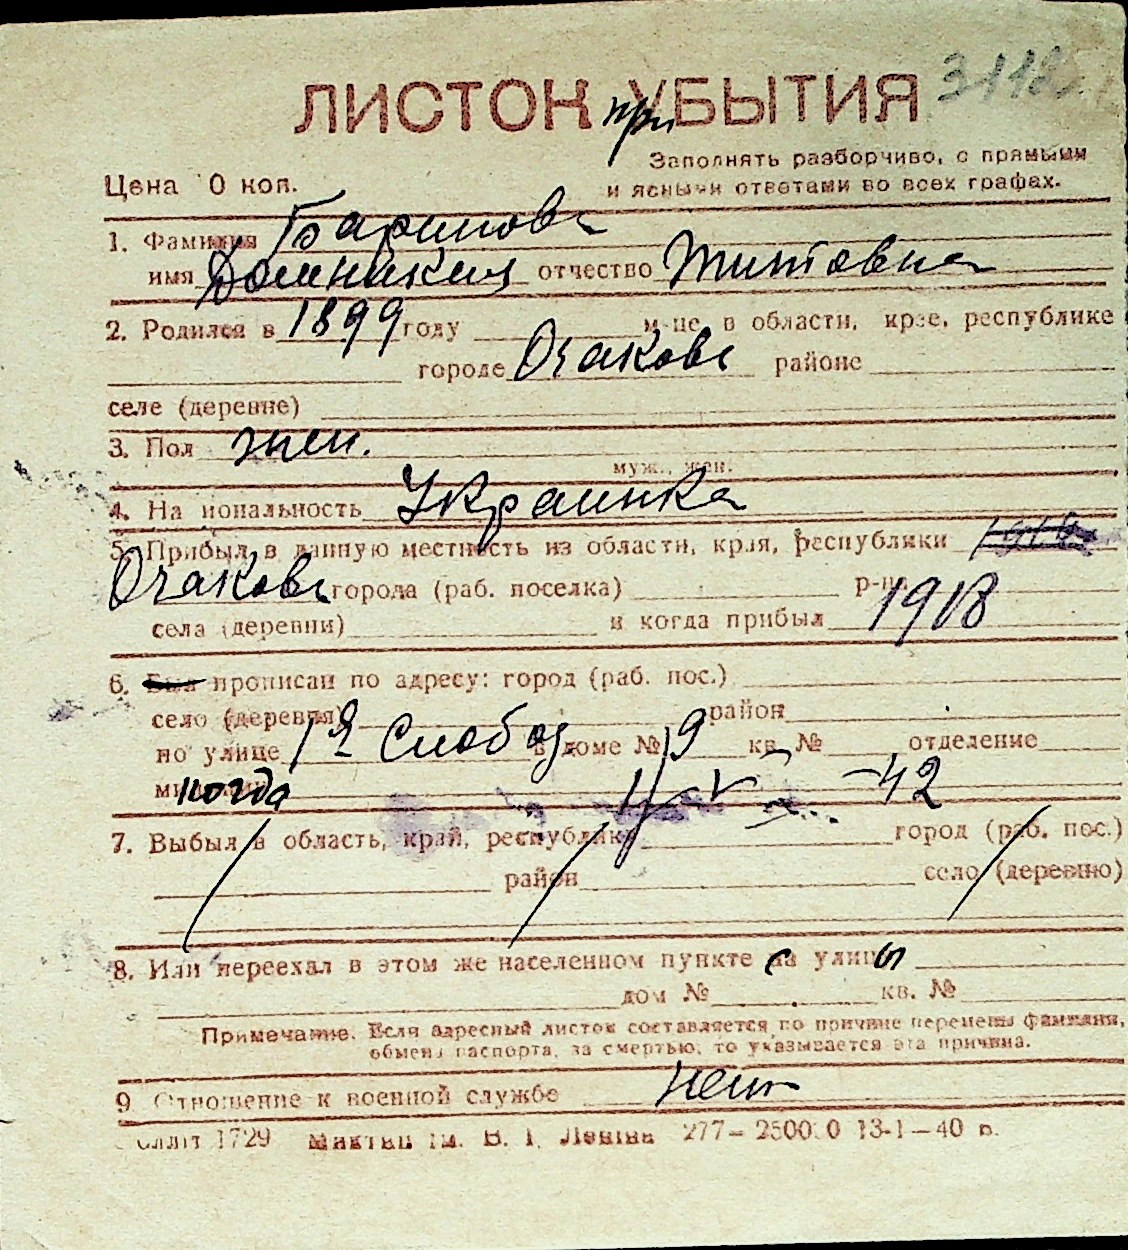 ЛИСТОК приУБЫТИЯ 3118
Заполнять разборчиво, с прямыми
и ясными ответами во всех графах.
Цена 10 коп.
1. Фамилия Баринова
имя Домникия отчество Титовна
2. Родился в 1899 году м-це в области, крае, республике
городе Очаков районе
селе (деревне)
3. Пол жен.
муж., жен.
4. Национальность Украинка
5. Прибыл в данную местность из области, края, республики
Очаков города (раб. поселка) р-на
села (деревни) и когда прибыл 1918
6. Был прописан по адресу: город (раб. пос.)
село (деревня) район
по улице 1я Слобод в доме № 9 кв. № отделение
милиции когда 42
7. Выбыл в область, край, республику город (раб. пос.)
район село (деревню)
8. Или переехал в этом же населенном пункте с улицы
дом № кв. №
Примечание. Если адресный листок составляется по причине перемены фамилии,
обмена паспорта, за смертью, то указывается эта причина.
9 Отношение к военной службе нет
1729 им. В. И. Ленина 277— 13-1—40 г.